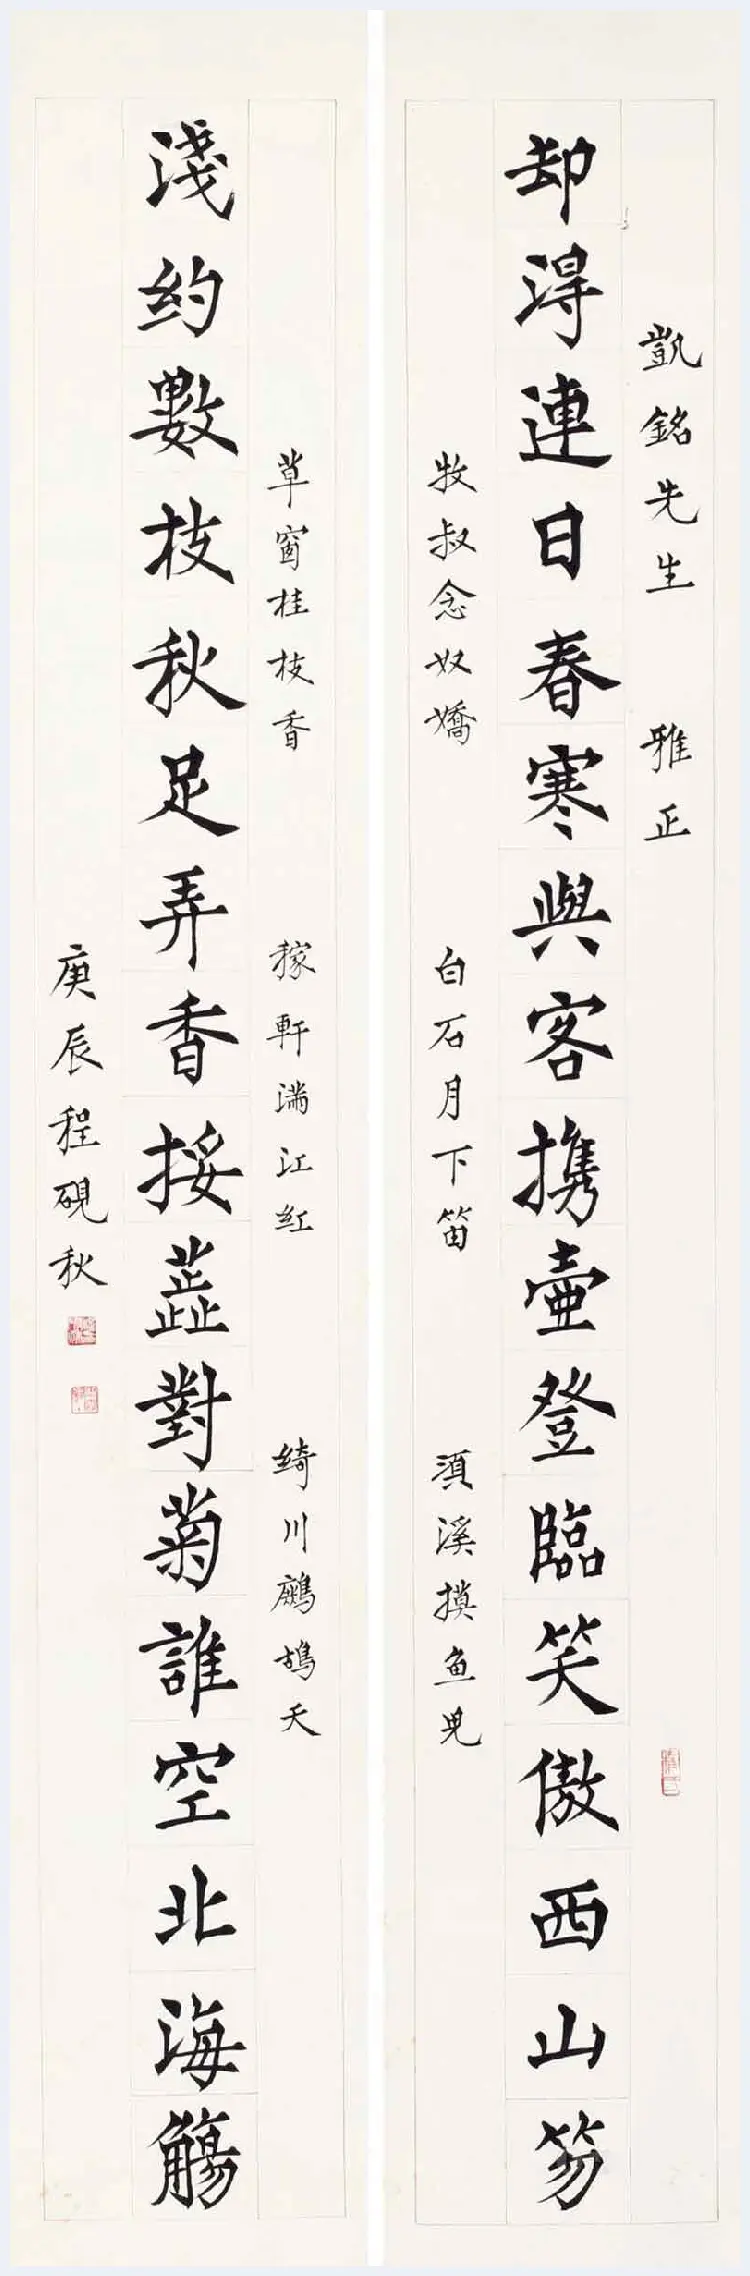 凱銘先生 雅正
却淂連日春寒與客携壺登臨笑傲西山笏
牧叔念奴嬌 白石月下笛 須溪摸魚兒
草窗桂枝香 稼軒滿江紅 綺川鷓鴣天
淺約數枝秋足弄香挼蕋對菊誰空北海觴
庚辰程硯秋